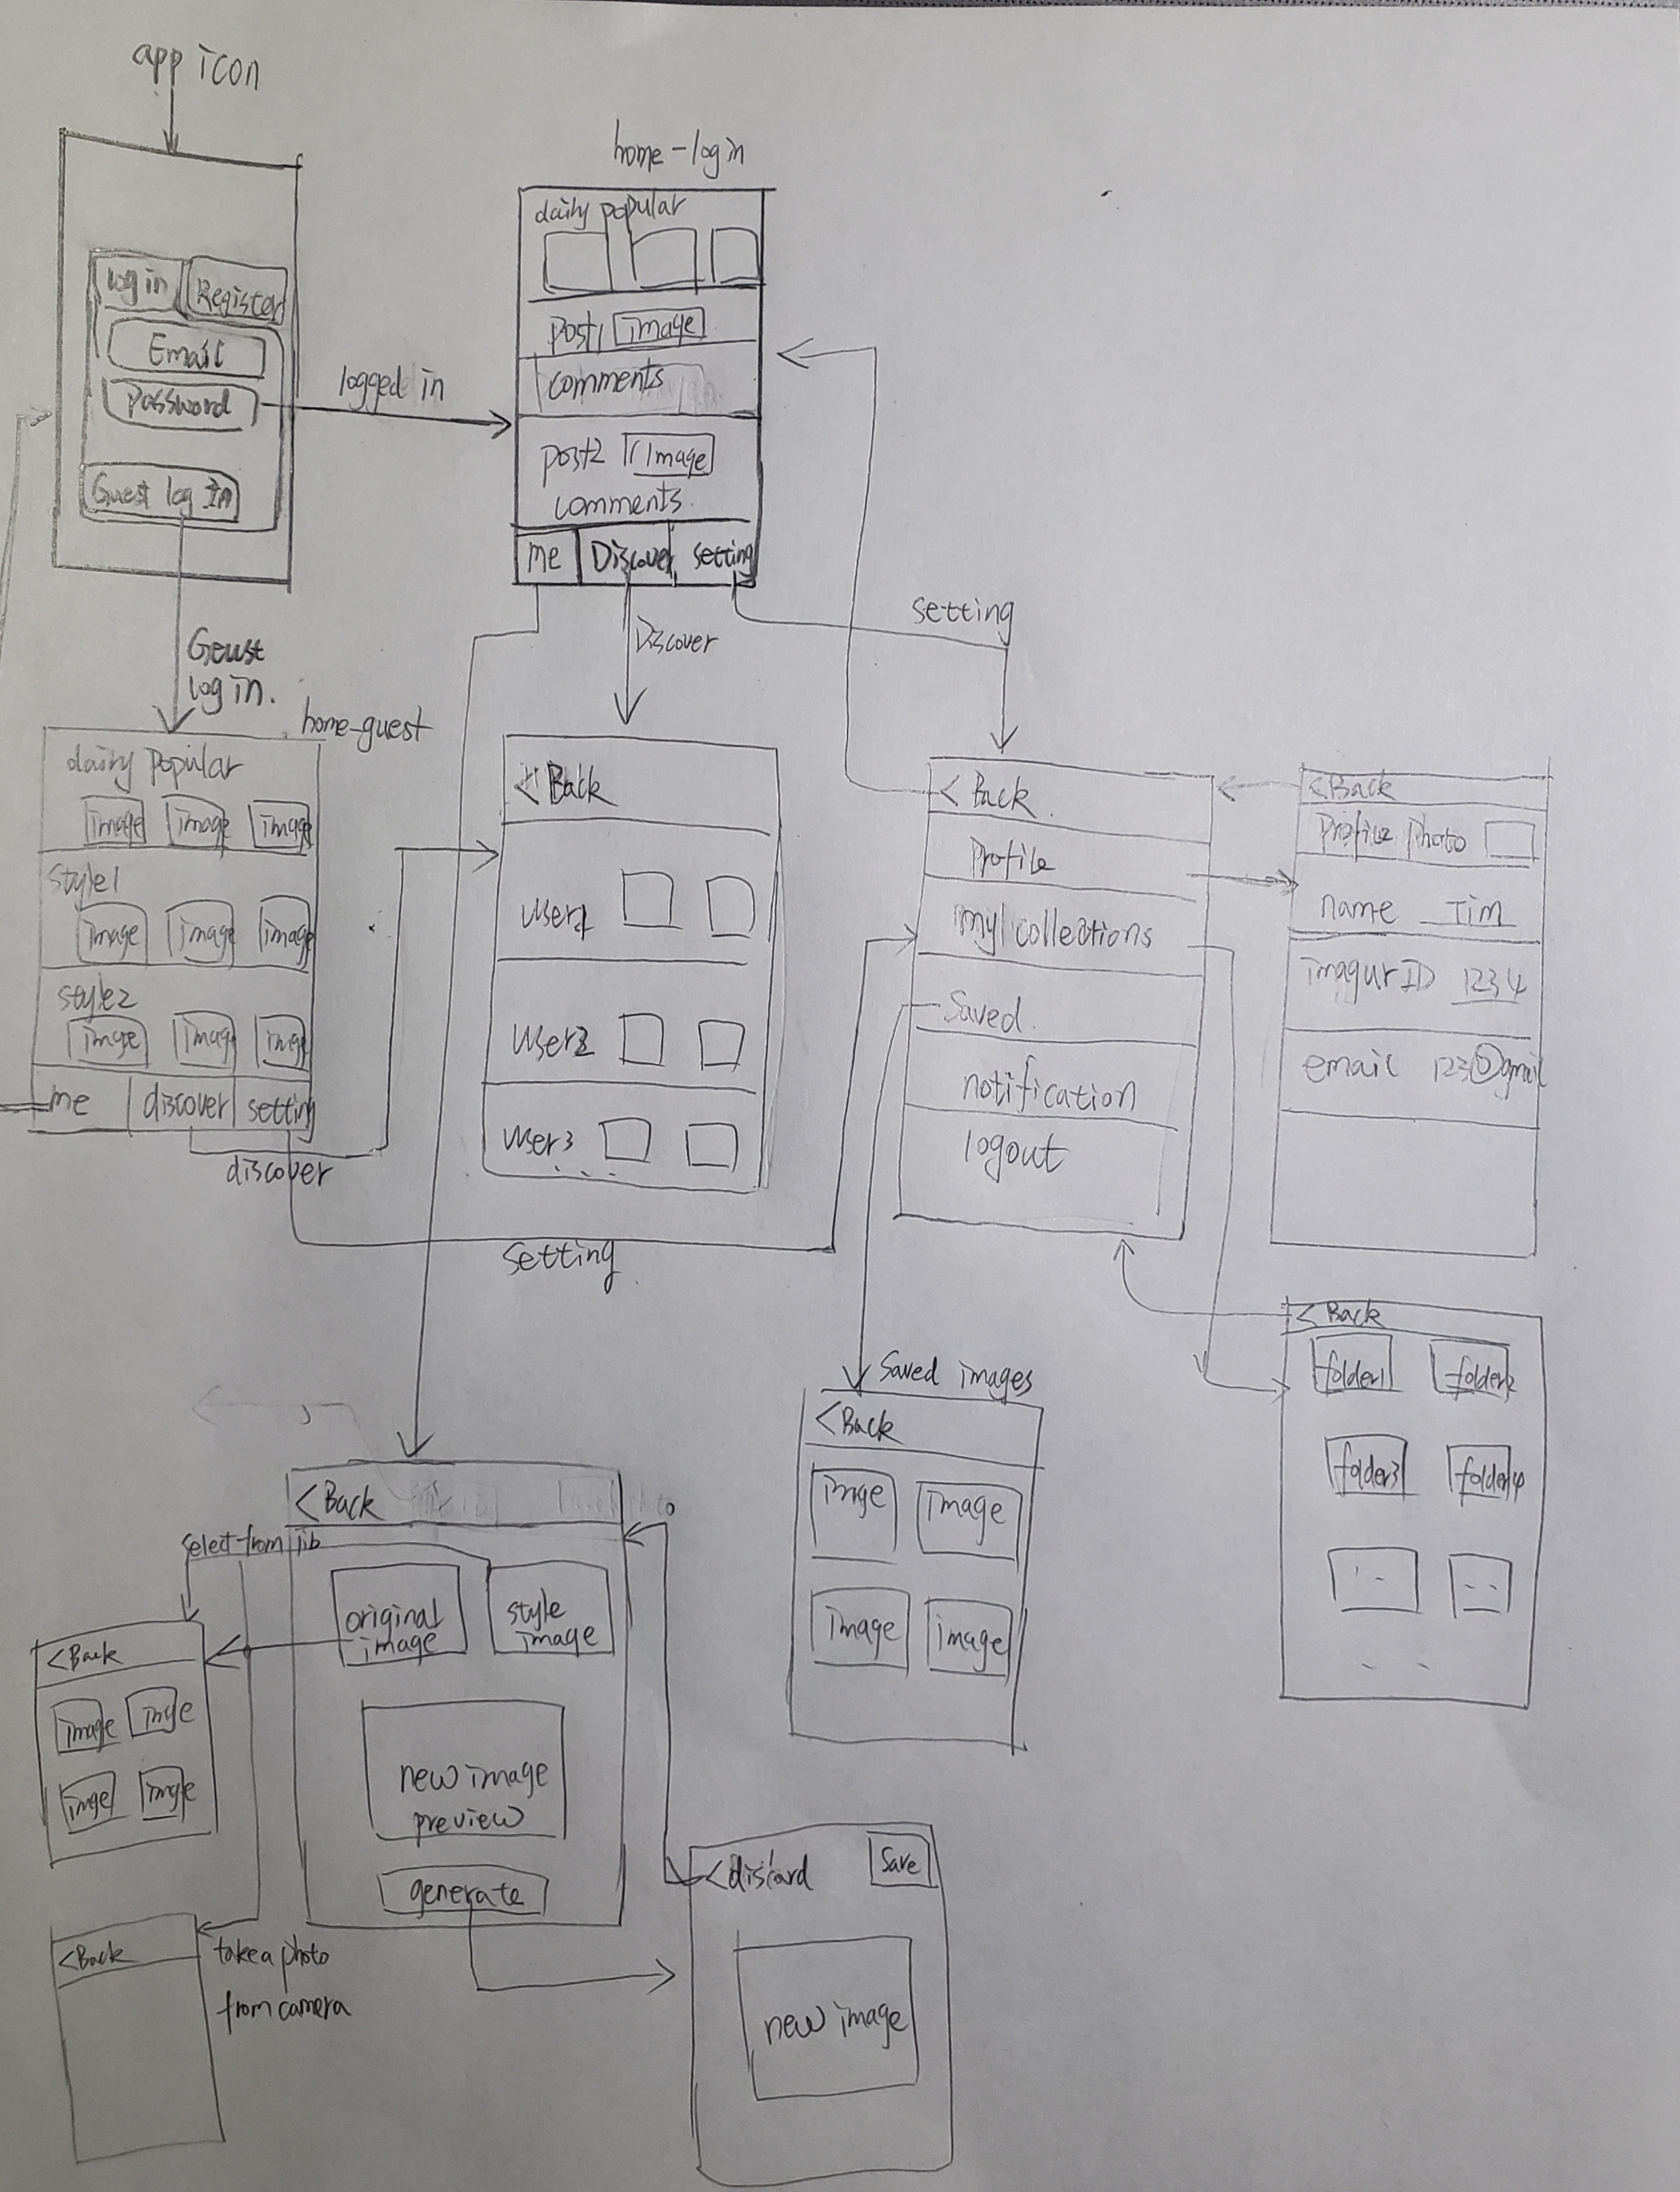 app icon
log in
Register
Email
Password
Guest log In
logged in
home-login
daily popular
post1 image
comments
post2 image
comments
me Discover setting
Geust
log in.
Discover
setting
home-guest
daily popular
image image image
style1
image image image
style2
image image image
me discover setting
discover
setting
< Back
user1
user2
user3
....
< Back
Profile
my collections
Saved
notification
logout
< Back
Profile photo
name Tim
imagur ID 1234
email 123@gmail
< Back
folder1 folder2
folder3 folder4
Saved images
< Back
imge image
image image
< Back
select from lib
original
image
style
image
new image
preview
generate
< Back
image imge
imge imge
< Back
take a photo
from camera
< discard
Save
new image